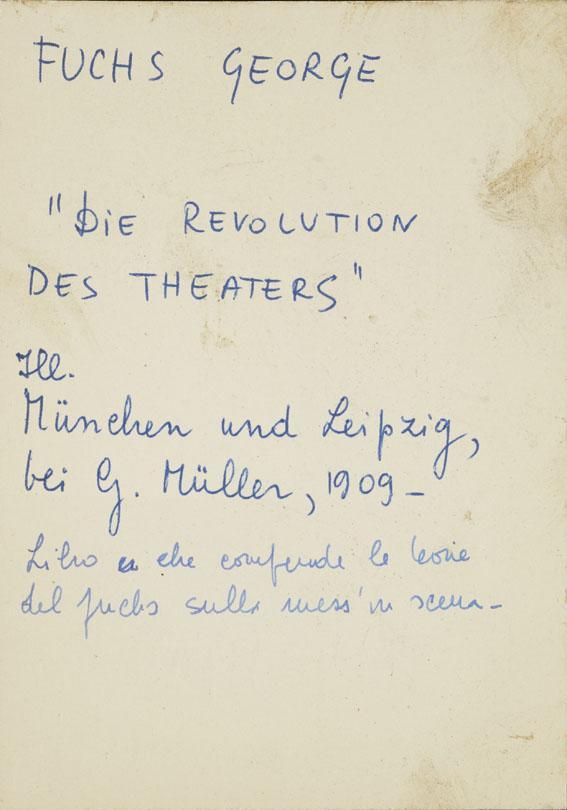 FUCHS GEORGE
"DIE REVOLUTION
DES THEATERS"
Ill.
München und Leipzig,
bei G. Müller, 1909 –
Libro che comprende le teorie
del fuchs sulla mess'in scena –